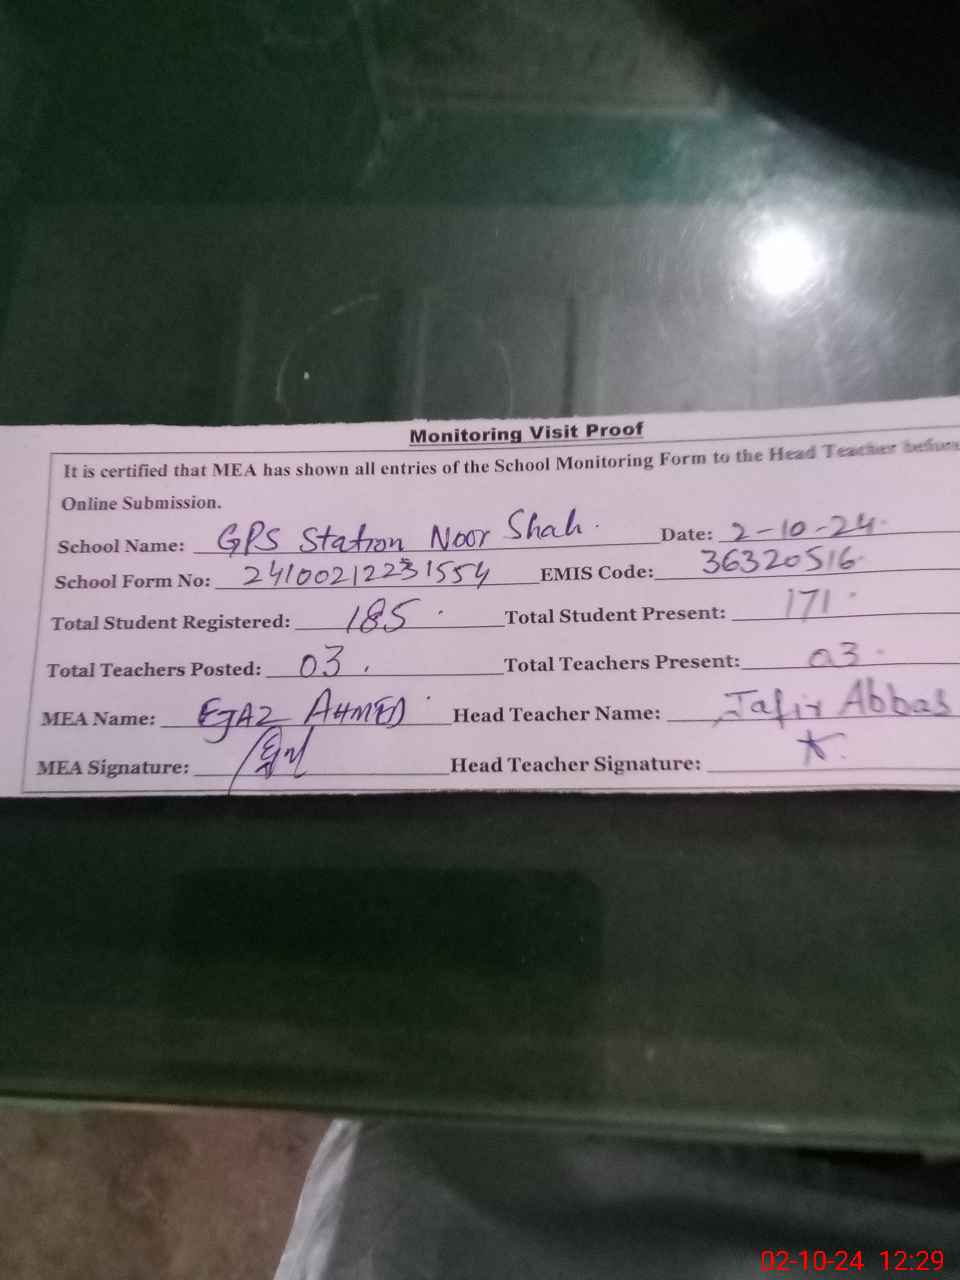 Monitoring Visit Proof
It is certified that MEA has shown all entries of the School Monitoring Form to the Head Teacher before
Online Submission.
School Name: GPS Station Noor Shah. Date: 2-10-24.
School Form No: 24100212231554 EMIS Code: 36320516
Total Student Registered: 185. Total Student Present: 171.
Total Teachers Posted: 03. Total Teachers Present: 03.
MEA Name: EJAZ AHMED. Head Teacher Name: Jafir Abbas
MEA Signature: Head Teacher Signature:
02-10-24 12:29